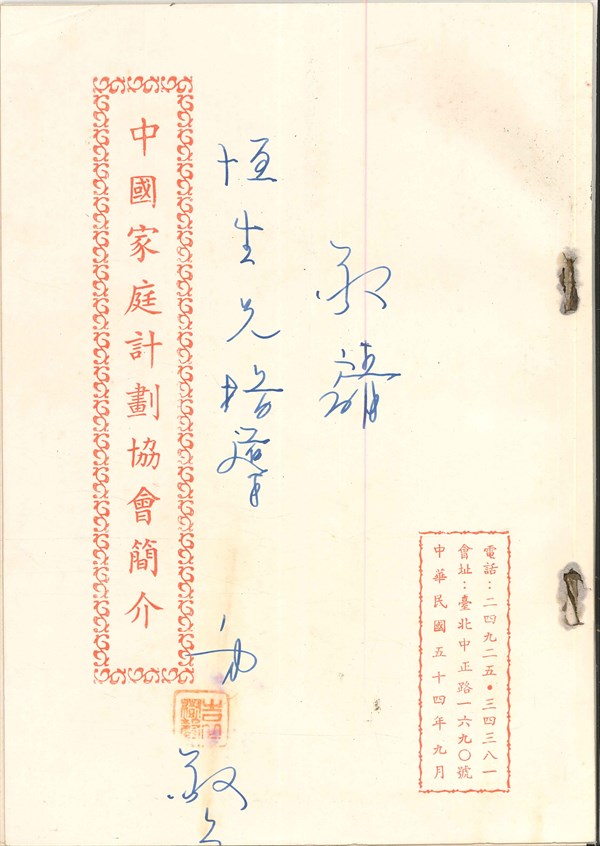 電話：二四九二五•三四三八一
會址：臺北中正路一六九〇號
中華民國五十四年九月
敬請
恒生兄指導
敬
中國家庭計劃協會簡介